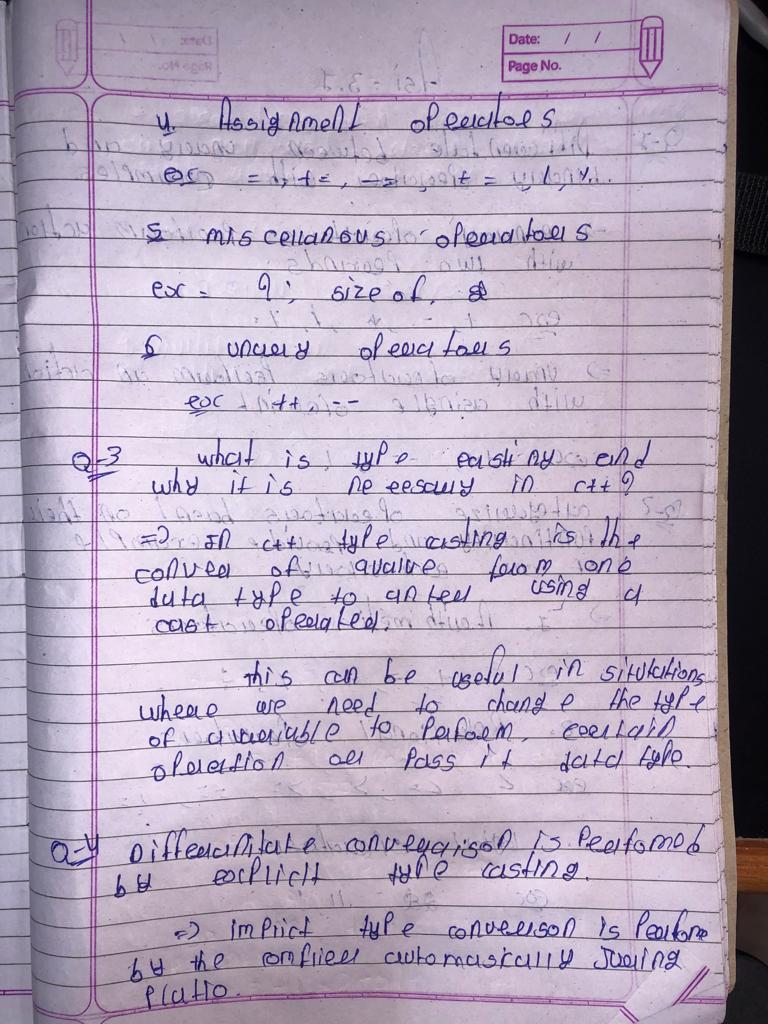 Date: / /
Page No.
4. Assignment operators
ex =, +=, -=, *=, /, %.
5 miscellanous operators
ex = ?: size of,
6 unary operators
ex ++, --
Q-3 what is type casting and
why it is necesary in c++?
=> In c++ type casting is the
conver of a value from one
data type to anter using a
cast operated.
this can be useful in situtations
where we need to change the type
of a variable to perform. certain
operation or pass it data type.
Q-4 Differanitate converaison is perfomeb
by explicit type casting.
=> implict type converson is perform
by the complier automascally